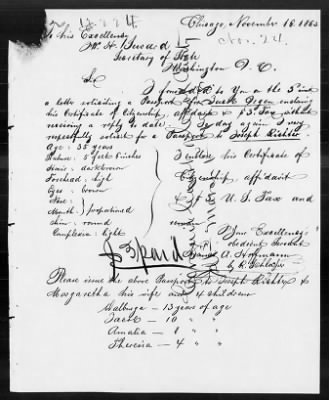 Chicago, November 16, 1865
To his Excellency
W. H. Seward
Secretary of State
Washington D. C.
Sir
I forwarded to You on the 3 inst
a letter soliciting a Passport for Jacob Degen enclosing
his Certificate of Citizenship, affidavit & $3. Tax without
receiving a reply to date. Today again I very
respectfully solicit for a Passport to Joseph Richter.
Age: 35 years
Stature: 5 feet inches
Hair: dark brown
Forehead: high
Eyes: brown
Nose:
Mouth: proportioned
Chin: round
Complexion: light
I enclose his Certificate of
Citizenship, affidavit
& $3 U. S. Tax and
remain
Your Excellency's
obedient Servant
Francis A. Hoffmann
by C. Schlosser
$3 paid
Please issue the above Passport to Joseph Richter &
Margaretha his wife and 4 Children
Walburga — 13 years of age
Jacob — 10 " "
Amalia — 8 " "
Theresia — 4 " "